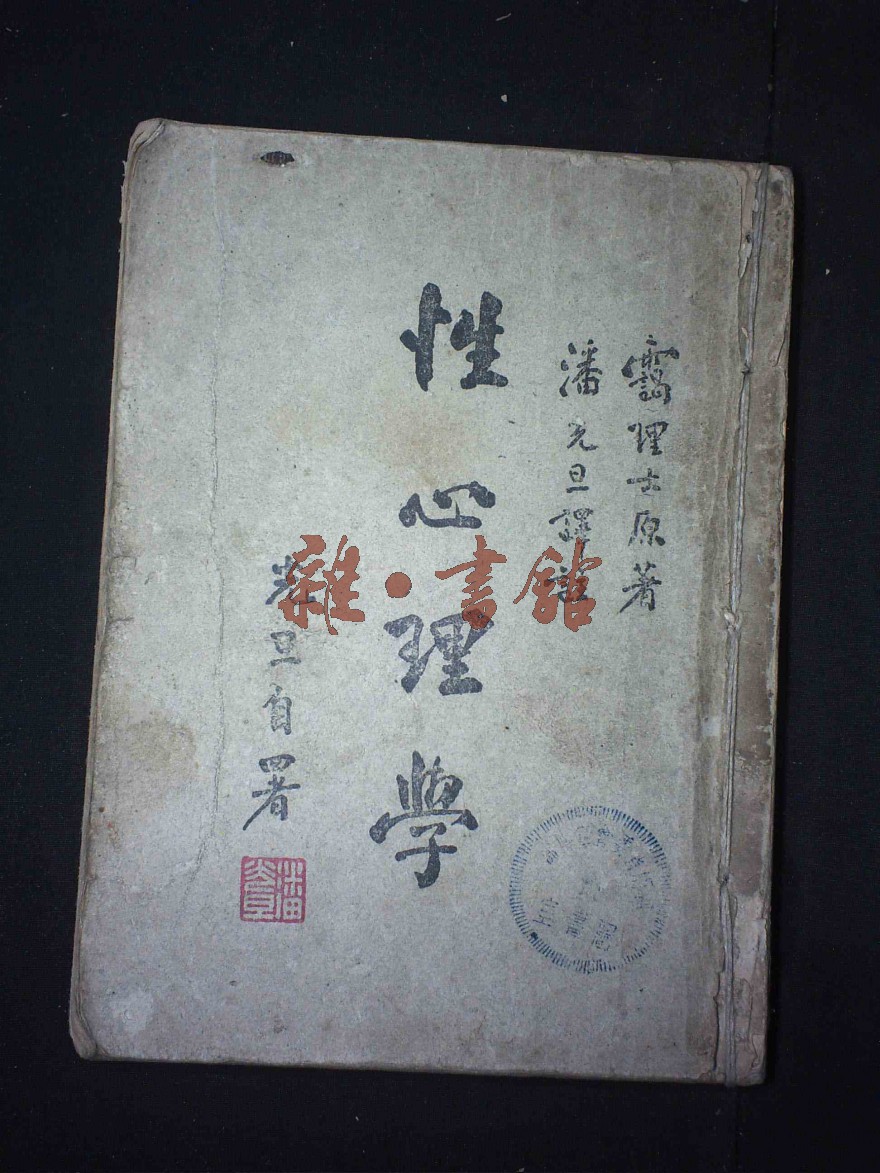 靄理士原著
潘光旦譯註
性心理學
光旦自署
雜·書館